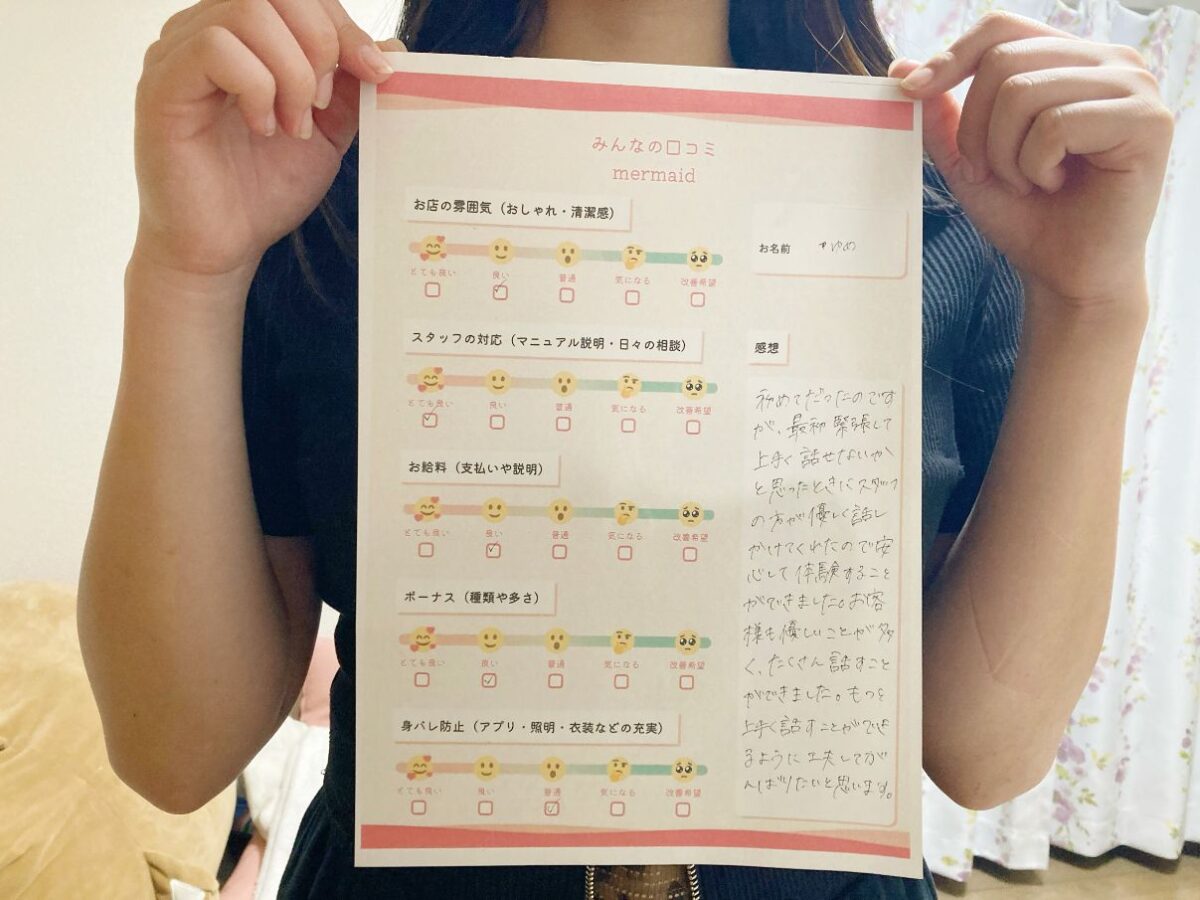 みんなの口コミ
mermaid
お店の雰囲気（おしゃれ・清潔感）
とても良い 良い 普通 気になる 改善希望
スタッフの対応（マニュアル説明・日々の相談）
とても良い 良い 普通 気になる 改善希望
お給料（支払いや説明）
とても良い 良い 普通 気になる 改善希望
ボーナス（種類や多さ）
とても良い 良い 普通 気になる 改善希望
身バレ防止（アプリ・照明・衣装などの充実）
とても良い 良い 普通 気になる 改善希望
お名前 ゆめ
感想
初めてだったのです
が、最初緊張して
上手く話せないか
と思ったときにスタッフ
の方が優しく話し
かけてくれたので安
心して体験すること
ができました。お客
様も優しいことが多
く、たくさん話すこと
ができました。もっと
上手く話すことができ
るように工夫してが
んばりたいと思います。